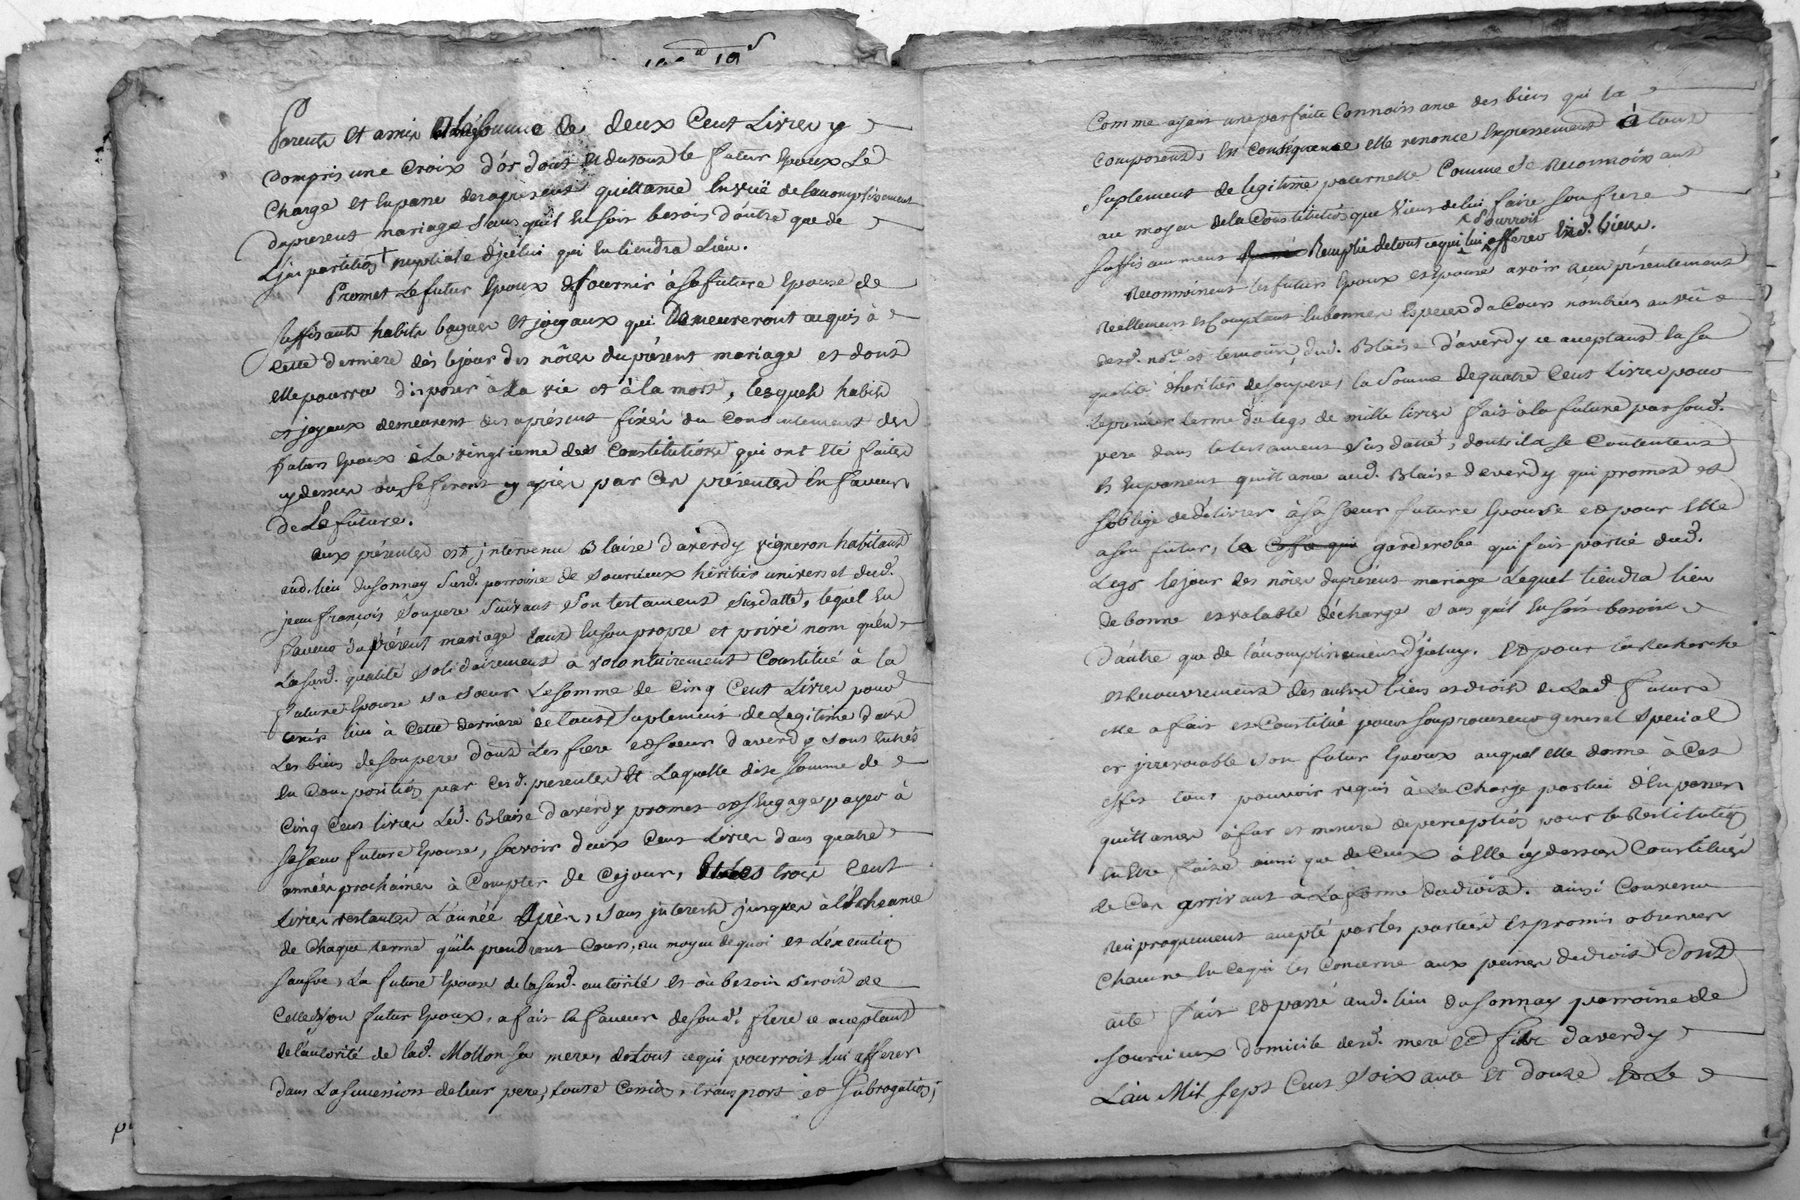 parents et amis a la somme de deux Cent Livres y
Compris une Croix d'or dont et du tout le futur Epoux se
Charge et en passe des aprésent quittance en vuë de lacomplissement
du present mariage sans quil en soit besoin d'autre que de
La partition nuptiale d'jcelui qui en tiendra Lieu.
Promet Le futur Epoux de fournir à sa future Epouse de
suffisants habits bagues et joyaux qui Demeureront acquis à
cette derniere dès le jour des nôces du présent mariage et dont
elle pourra disposer à La vie et à la mort, lesquels habits
et joyaux demeurent des aprésent fixés du Consentement des
futurs Epoux à La vingtieme des Constitutions qui ont été faites
cy dessus ou se feront cy après par Ces présentes En faveur
de La future.
aux présentes est jntervenu Blaise d'averdy vigneron habitant
aud. lieu du sonnay susd. parroisse de sourcieux héritier universel dud.
jean françois son pere suivant son testament susdatté, lequel En
faveur du présent mariage tant En son propre et privé nom qu'en
La susd. qualité solidairement a volontairement Constitué à la
future Epouse sa soeur La somme de Cinq Cent Livres pour
tenir lieu à Cette derniere de tout suplement de Legitime dans
Les biens de son pere dont Les frere et soeur d'averdy sont Entrés
En Composition par Cesd. presentes et Laquelle dite somme de
Cinq Cent livres Led. Blaise d'averdy promet et s'Engage payer à
sa soeur future Epouse, sçavoir deux Cent Livres dans quatre
années prochaines à Compter de Cejour, Et Les trois Cent
livres restantes L'année après, sans jnterests jusques à l'Echeance
de Chaque terme qu'ils prendront Cours, au moyen de quoi et L'execution
saufve, La future Epouse de la susd. autorité et où besoin seroit de
Celle de son futur Epoux, a fait En faveur de sond. frere ce acceptant
de l'autorité de lad. Mollon sa mere, de tout cequi pourroit lui afferer
dans La succession de leur pere, toute Cession, transport et subrogation;
Comme ayant une parfaite Connoissance des biens qui la
Composent, En Conséquence elle renonce Expressement à tout
suplement de legitime paternelle Comme se reconnoissant
au moyen de la Constitution que vient de lui faire son frere
pourroit
suffisamment Remplie de tout cequi lui afferer Esd. biens.
Reconnoissent les futurs Epoux et Epouse avoir reçu présentement
réellement et Comptant En bonnes Especes de Cours nombrées au vû
desd. no.re et temoins, dud. Blaise d'averdy ce acceptant En sa
qualité d'héritier de son pere, la somme de quatre Cent Livres pour
le premier terme du legs de mille livres fait à la future par sond.
pere dans le testament susdatté, dont ils se Contentent
Et En passent quittance aud. Blaise d'averdy qui promet et
s'oblige de délivrer à sa soeur future Epouse et pour Elle
a son futur, la garderobe qui fait partie dud.
Legs le jour des nôces du présent mariage Lequel tiendra lieu
de bonne et valable décharge sans qu'il En soit besoin
d'autre que de l'acomplissement d'jceluy. Et pour la recherche
et recouvrement des autres biens et droits de Lad. future
elle a fait et Constitué pour son procureur general special
et jrrevocable son futur Epoux auquel elle donne à Cet
effet tout pouvoir requis à La Charge par lui d'En passer
quittances à fur et mesure de perception pour la Restitution
En Etre faite ainsi que de Ceux à Elle cy dessus Constitués
le Cas arrivant à La forme du droit. ainsi Convenu
reciproquement acepté par les parties Et promis observer
Chacune En Cequi les Concerne aux peines de droit Dont
acte fait et passé aud. lieu du sonnay parroisse de
sourcieux domicile desd. mere et fils d'averdy
L'an Mil sept Cent soixante et douze Et Le